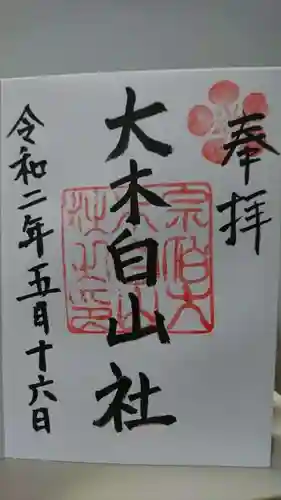 奉拝
大木白山社
令和二年五月十六日